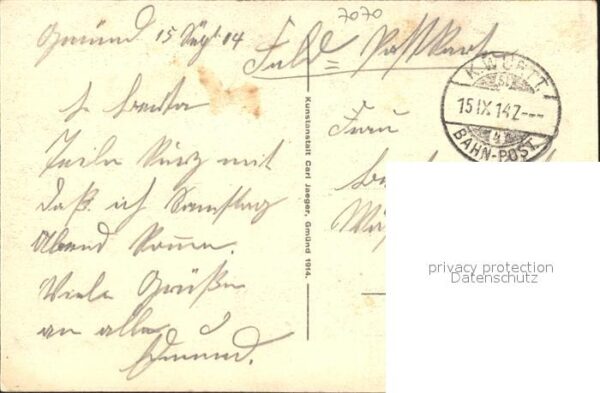 7070
Gmünd 15 Sept 14
Feld = Postkart
K.WÜRTT.
15 IX 14 Z---
BAHN-POST.
L. Berta
Teile Kurz mit
daß ich Samstag
Abend komme.
Viele Grüße
an alle
Edmund.
Kunstanstalt Carl Jaeger, Gmünd 1914.
Frau
privacy protection
Datenschutz